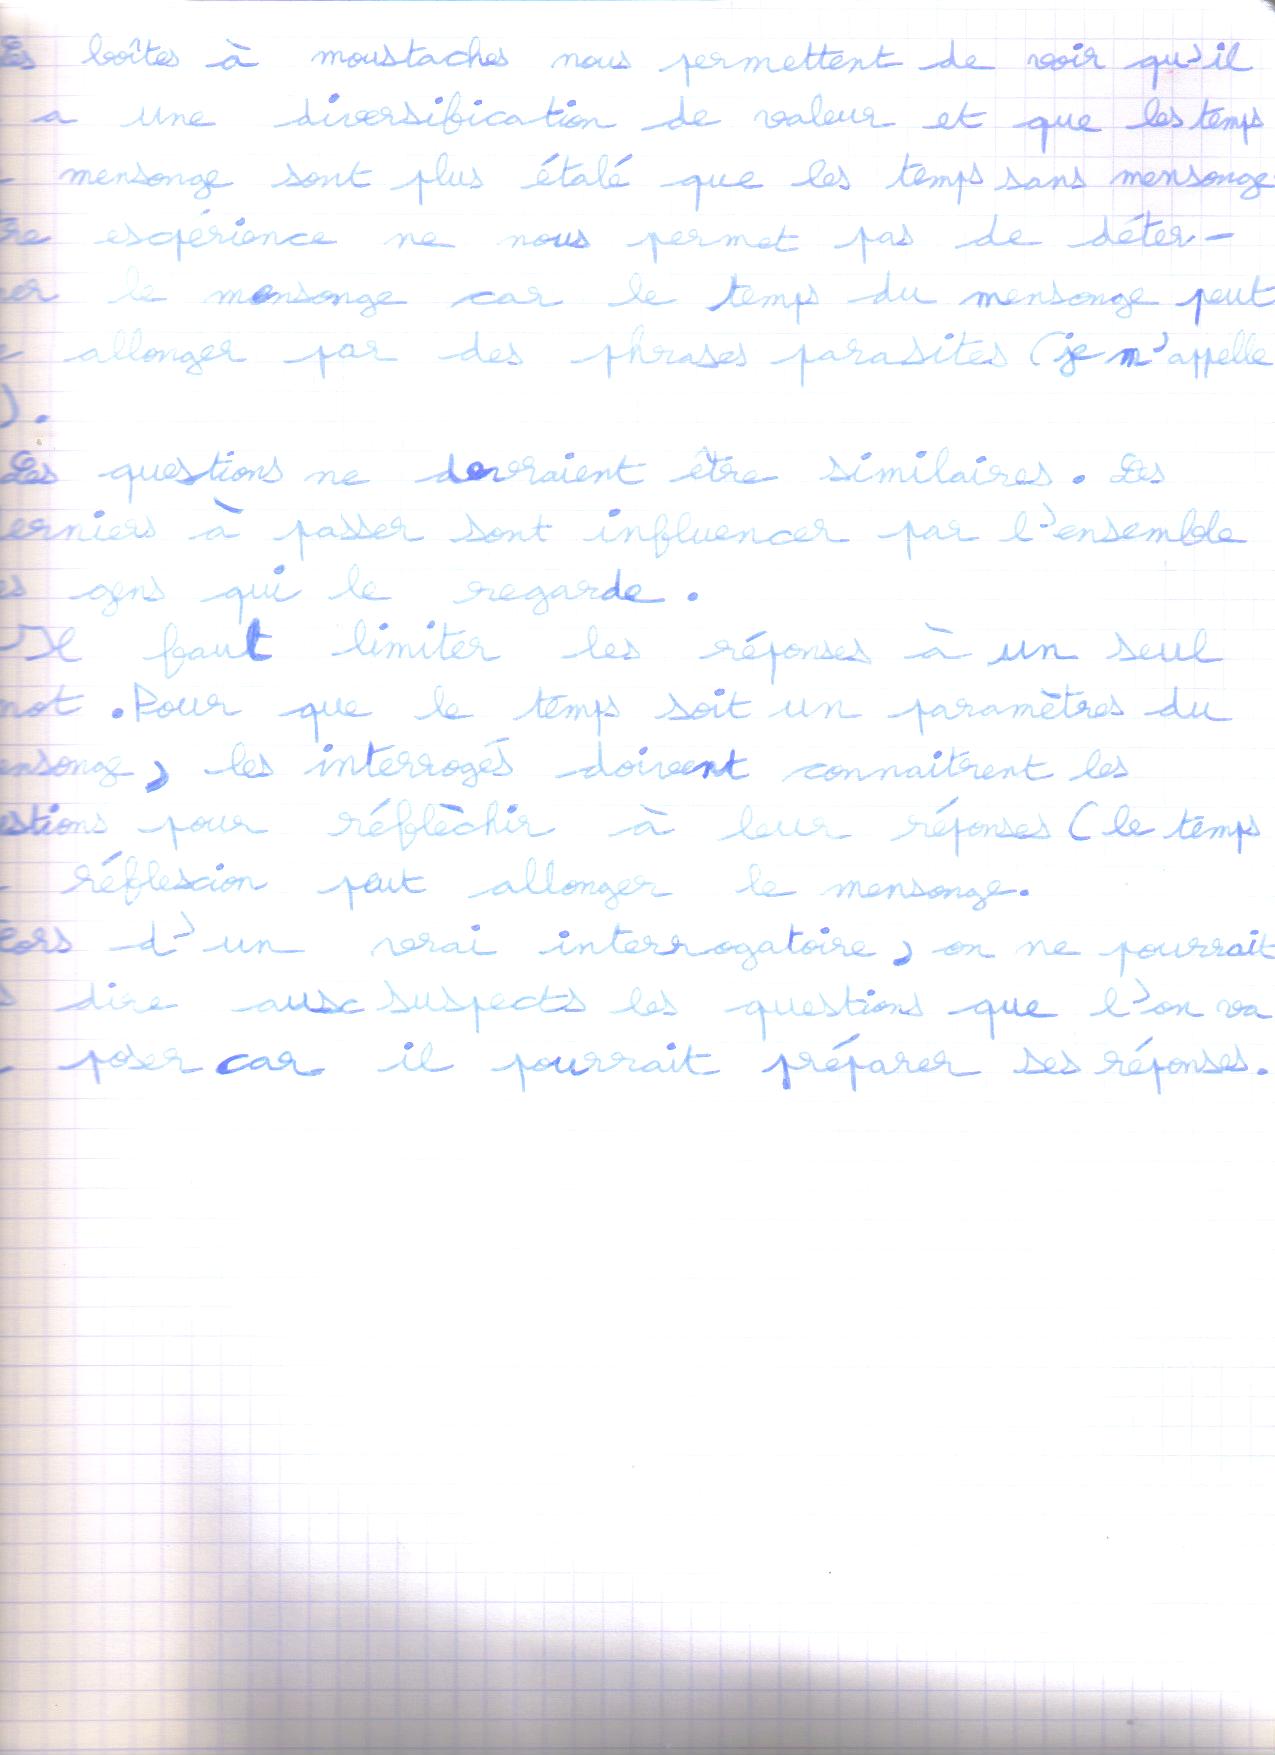 Les boîtes à moustaches nous permettent de voir qu'il
a une diversification de valeur et que les temps
mensonge sont plus étalé que les temps sans mensonge
re expérience ne nous permet pas de déter-
er le mensonge car le temps du mensonge peut
allonger par des phrases parasites (je m'appelle
).
Les questions ne devraient être similaires. Les
erniers à passer sont influencer par l'ensemble
s gens qui le regarde.
Il faut limiter les réponses à un seul
mot. Pour que le temps soit un paramètres du
ensonge, les interrogés doivent connaitrent les
estions pour réflèchir à leur réponses (le temps
réflexion peut allonger le mensonge.
Lors d'un vrai interrogatoire, on ne pourrait
s dire aux suspects les questions que l'on va
poser car il pourrait préparer ses réponses.